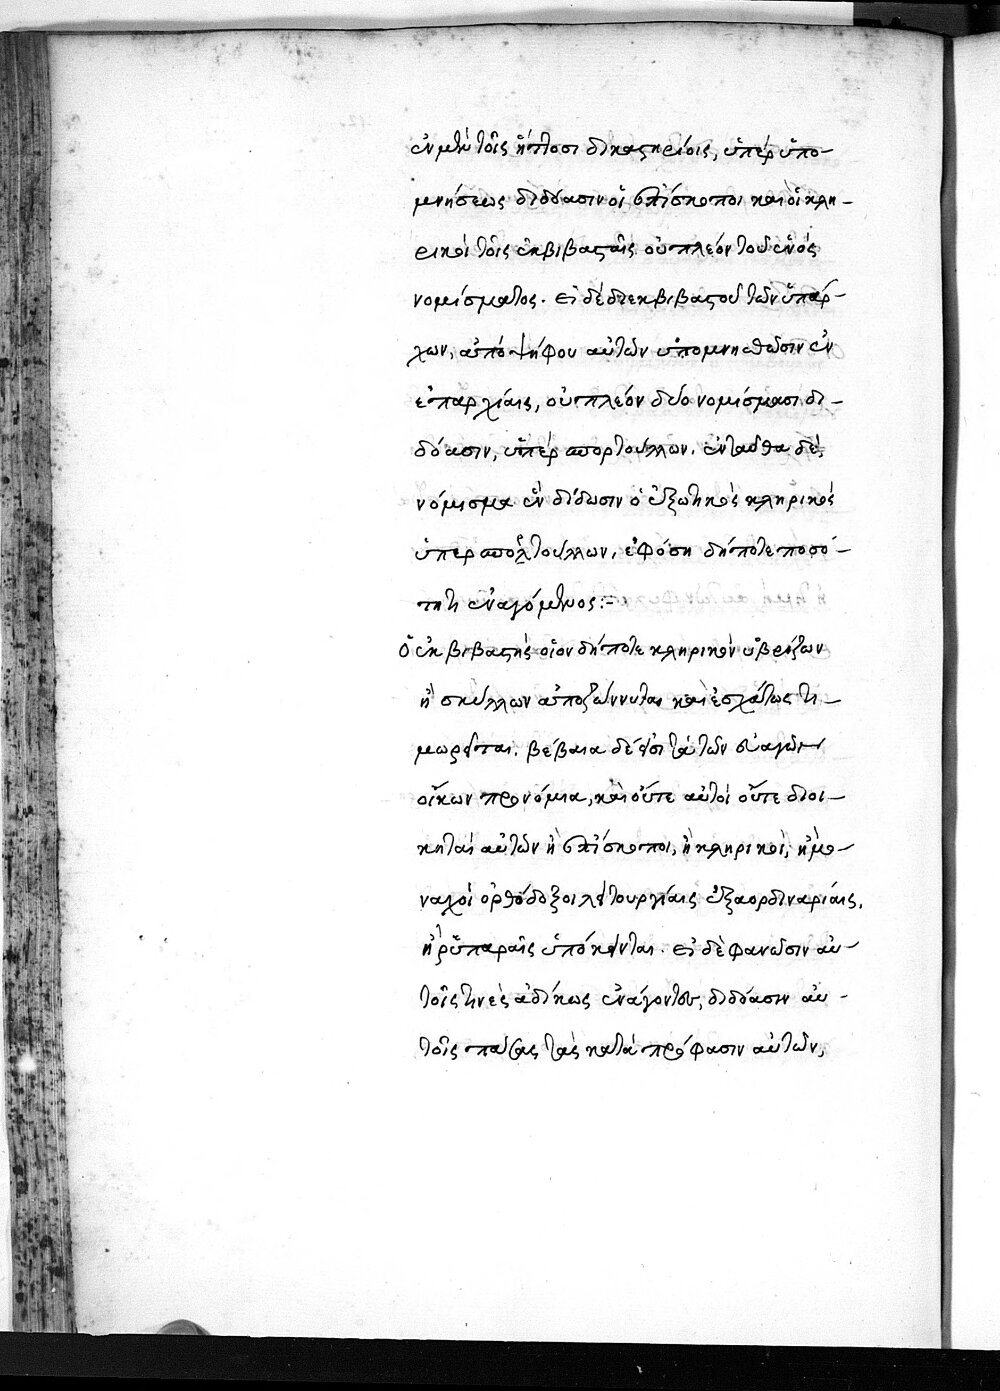 ἐν μὲν τοῖς ἥττοσι δικαστηρίοις, ὑπὲρ ὑπο-
μνήσεως διδόασιν οἱ ἐπίσκοποι καὶ οἱ κλη-
ρικοὶ τοῖς ἐκβιβασταῖς οὐ πλέον τοῦ ἑνὸς
νομίσματος. εἰ δὲ δι' ἐκβιβαστοῦ τῶν ὑπάρ-
χων, ἀπὸ ψήφου αὐτῶν ὑπομνησθῶσιν ἐν
ἐπαρχίαις, οὐ πλέον δύο νομίσμασι δι-
δόασιν, ὑπὲρ σπορτούλλων. ἐνταῦθα δὲ
νόμισμα ἓν δίδωσιν ὁ ἐξωτικὸς κληρικὸς
ὑπὲρ σπορτούλλων, ἐφ' ὅση δήποτε ποσό-
τητι ἐναγόμενος:-
Ὁ ἐκβιβαστὴς οἷον δήποτε κληρικὸν ὑβρίζων
ἢ σκύλλων ἀποζώννυται καὶ ἐσχάτως τι-
μωρεῖται. βέβαια δέ εἰσι τὰ τῶν εὐαγῶν
οἴκων προνόμια, καὶ οὔτε αὐτοὶ οὔτε διοι-
κηταὶ αὐτῶν ἢ ἐπίσκοποι, ἢ κληρικοὶ, ἢ μο-
ναχοὶ ὀρθόδοξοι λειτουργίαις ἐξαορδιναρίαις,
ἢ ῥυπαραῖς ὑπόκεινται. εἰ δὲ φανῶσιν αὐ-
τοῖς τινες ἀδίκως ἐνάγοντες, διδόασιν αὐ-
τοῖς πάσας τὰς κατὰ πρόφασιν αὐτῶν,